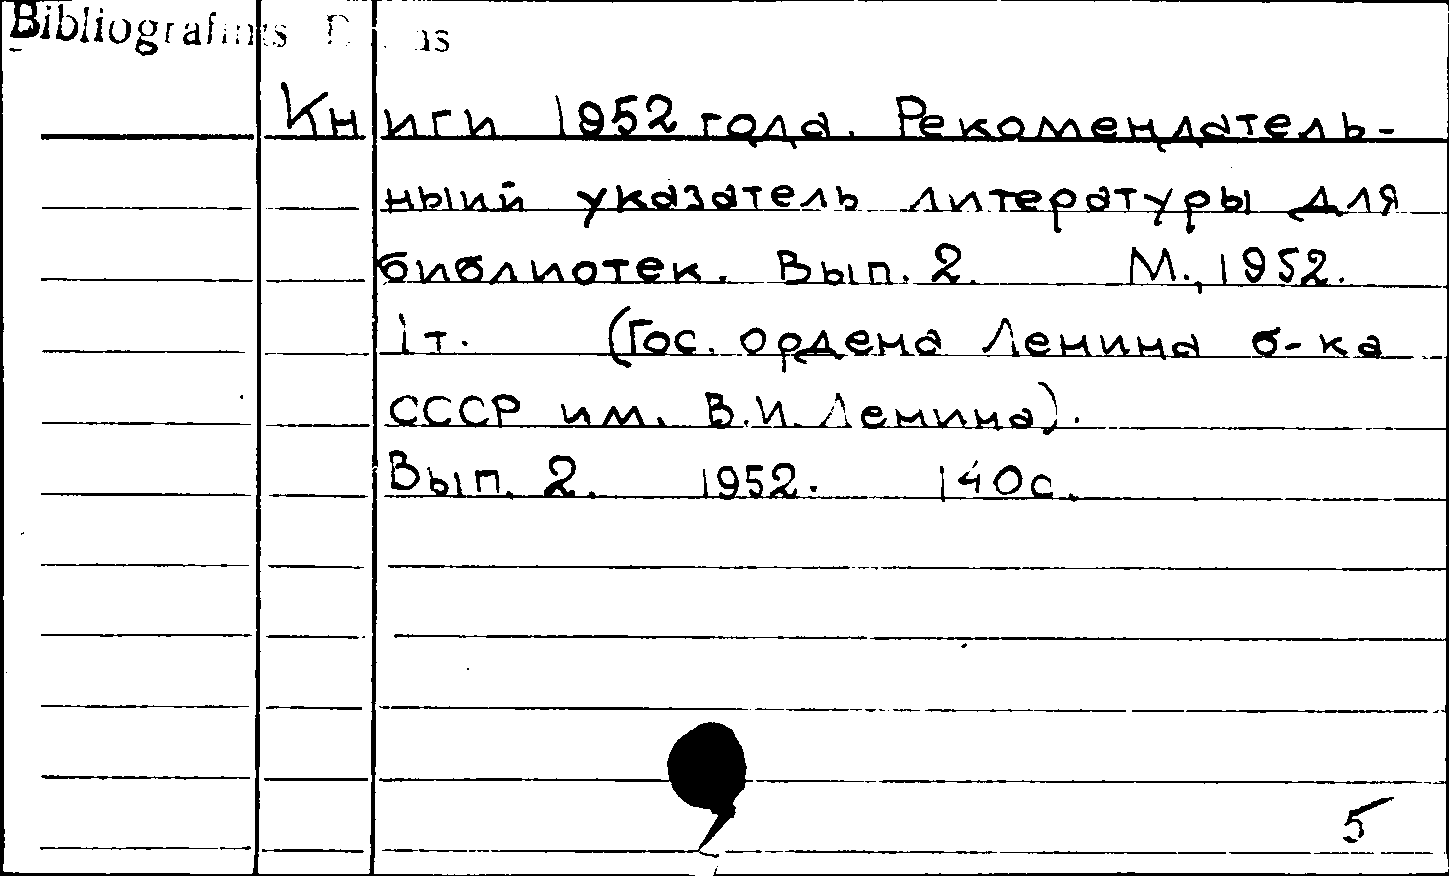 Книги 1952 года. Рекомендатель-
ный указатель литературы для
библиотек. Вып. 2. М., 1952.
1т. (Гос. ордена Ленина б-ка
СССР им. В.И. Ленина).
Вып. 2. 1952. 140с.
5